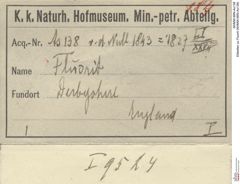 K. k. Naturh. Hofmuseum. Min.-petr. Abteilg.
Acq.-Nr. 138 1843 = 1827
Name Fluorit
Fundort Derbyshire
England
I
I 9524